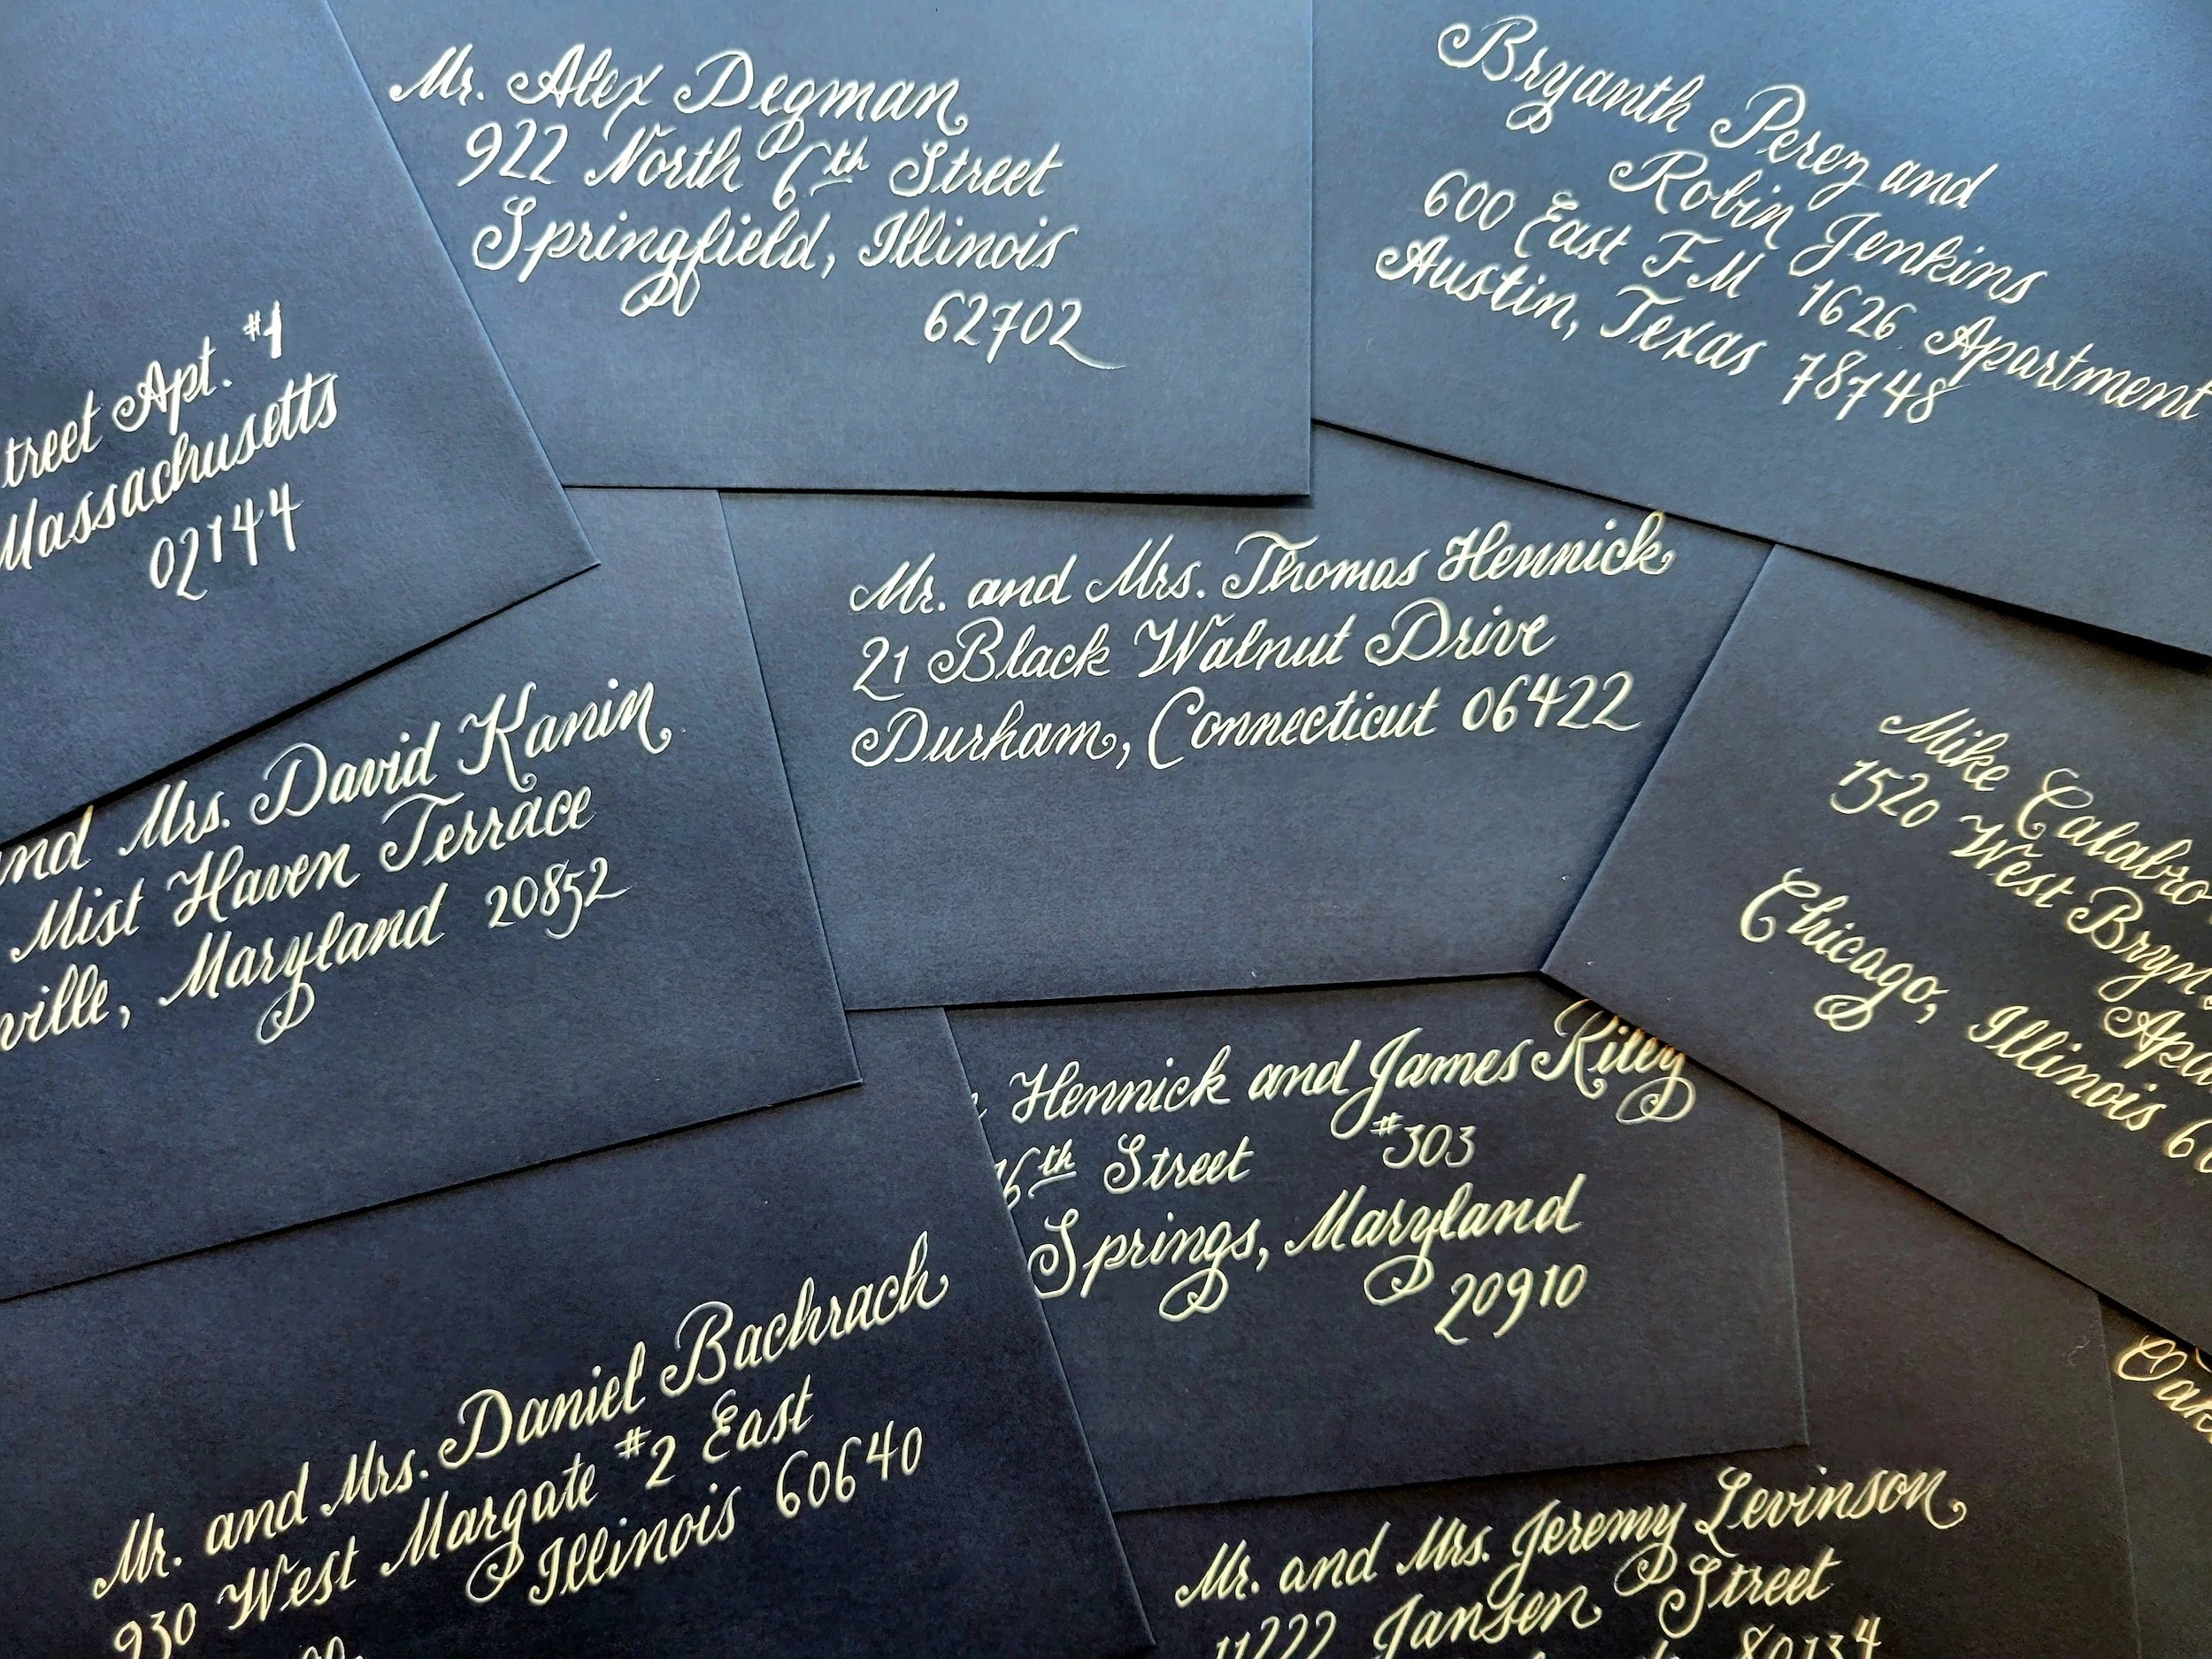 Mr. Alex Degman
922 North 6th Street
Springfield, Illinois
62702
Bryanth Perez and
Robin Jenkins
600 East FM 1626 Apartment
Austin, Texas 78748
treet Apt. #1
Massachusetts
02144
Mr. and Mrs. Thomas Hennick
21 Black Walnut Drive
Durham, Connecticut 06422
and Mrs. David Kanin
Mist Haven Terrace
ville, Maryland 20852
Mike Calabro
1520 West Bryn
Apa
Chicago, Illinois 60
Hennick and James Riley
6th Street #303
Springs, Maryland
20910
Mr. and Mrs. Daniel Bachrach
930 West Margate #2 East
Illinois 60640
Mr. and Mrs. Jeremy Levinson
11222 Jansen Street
80134
Oak